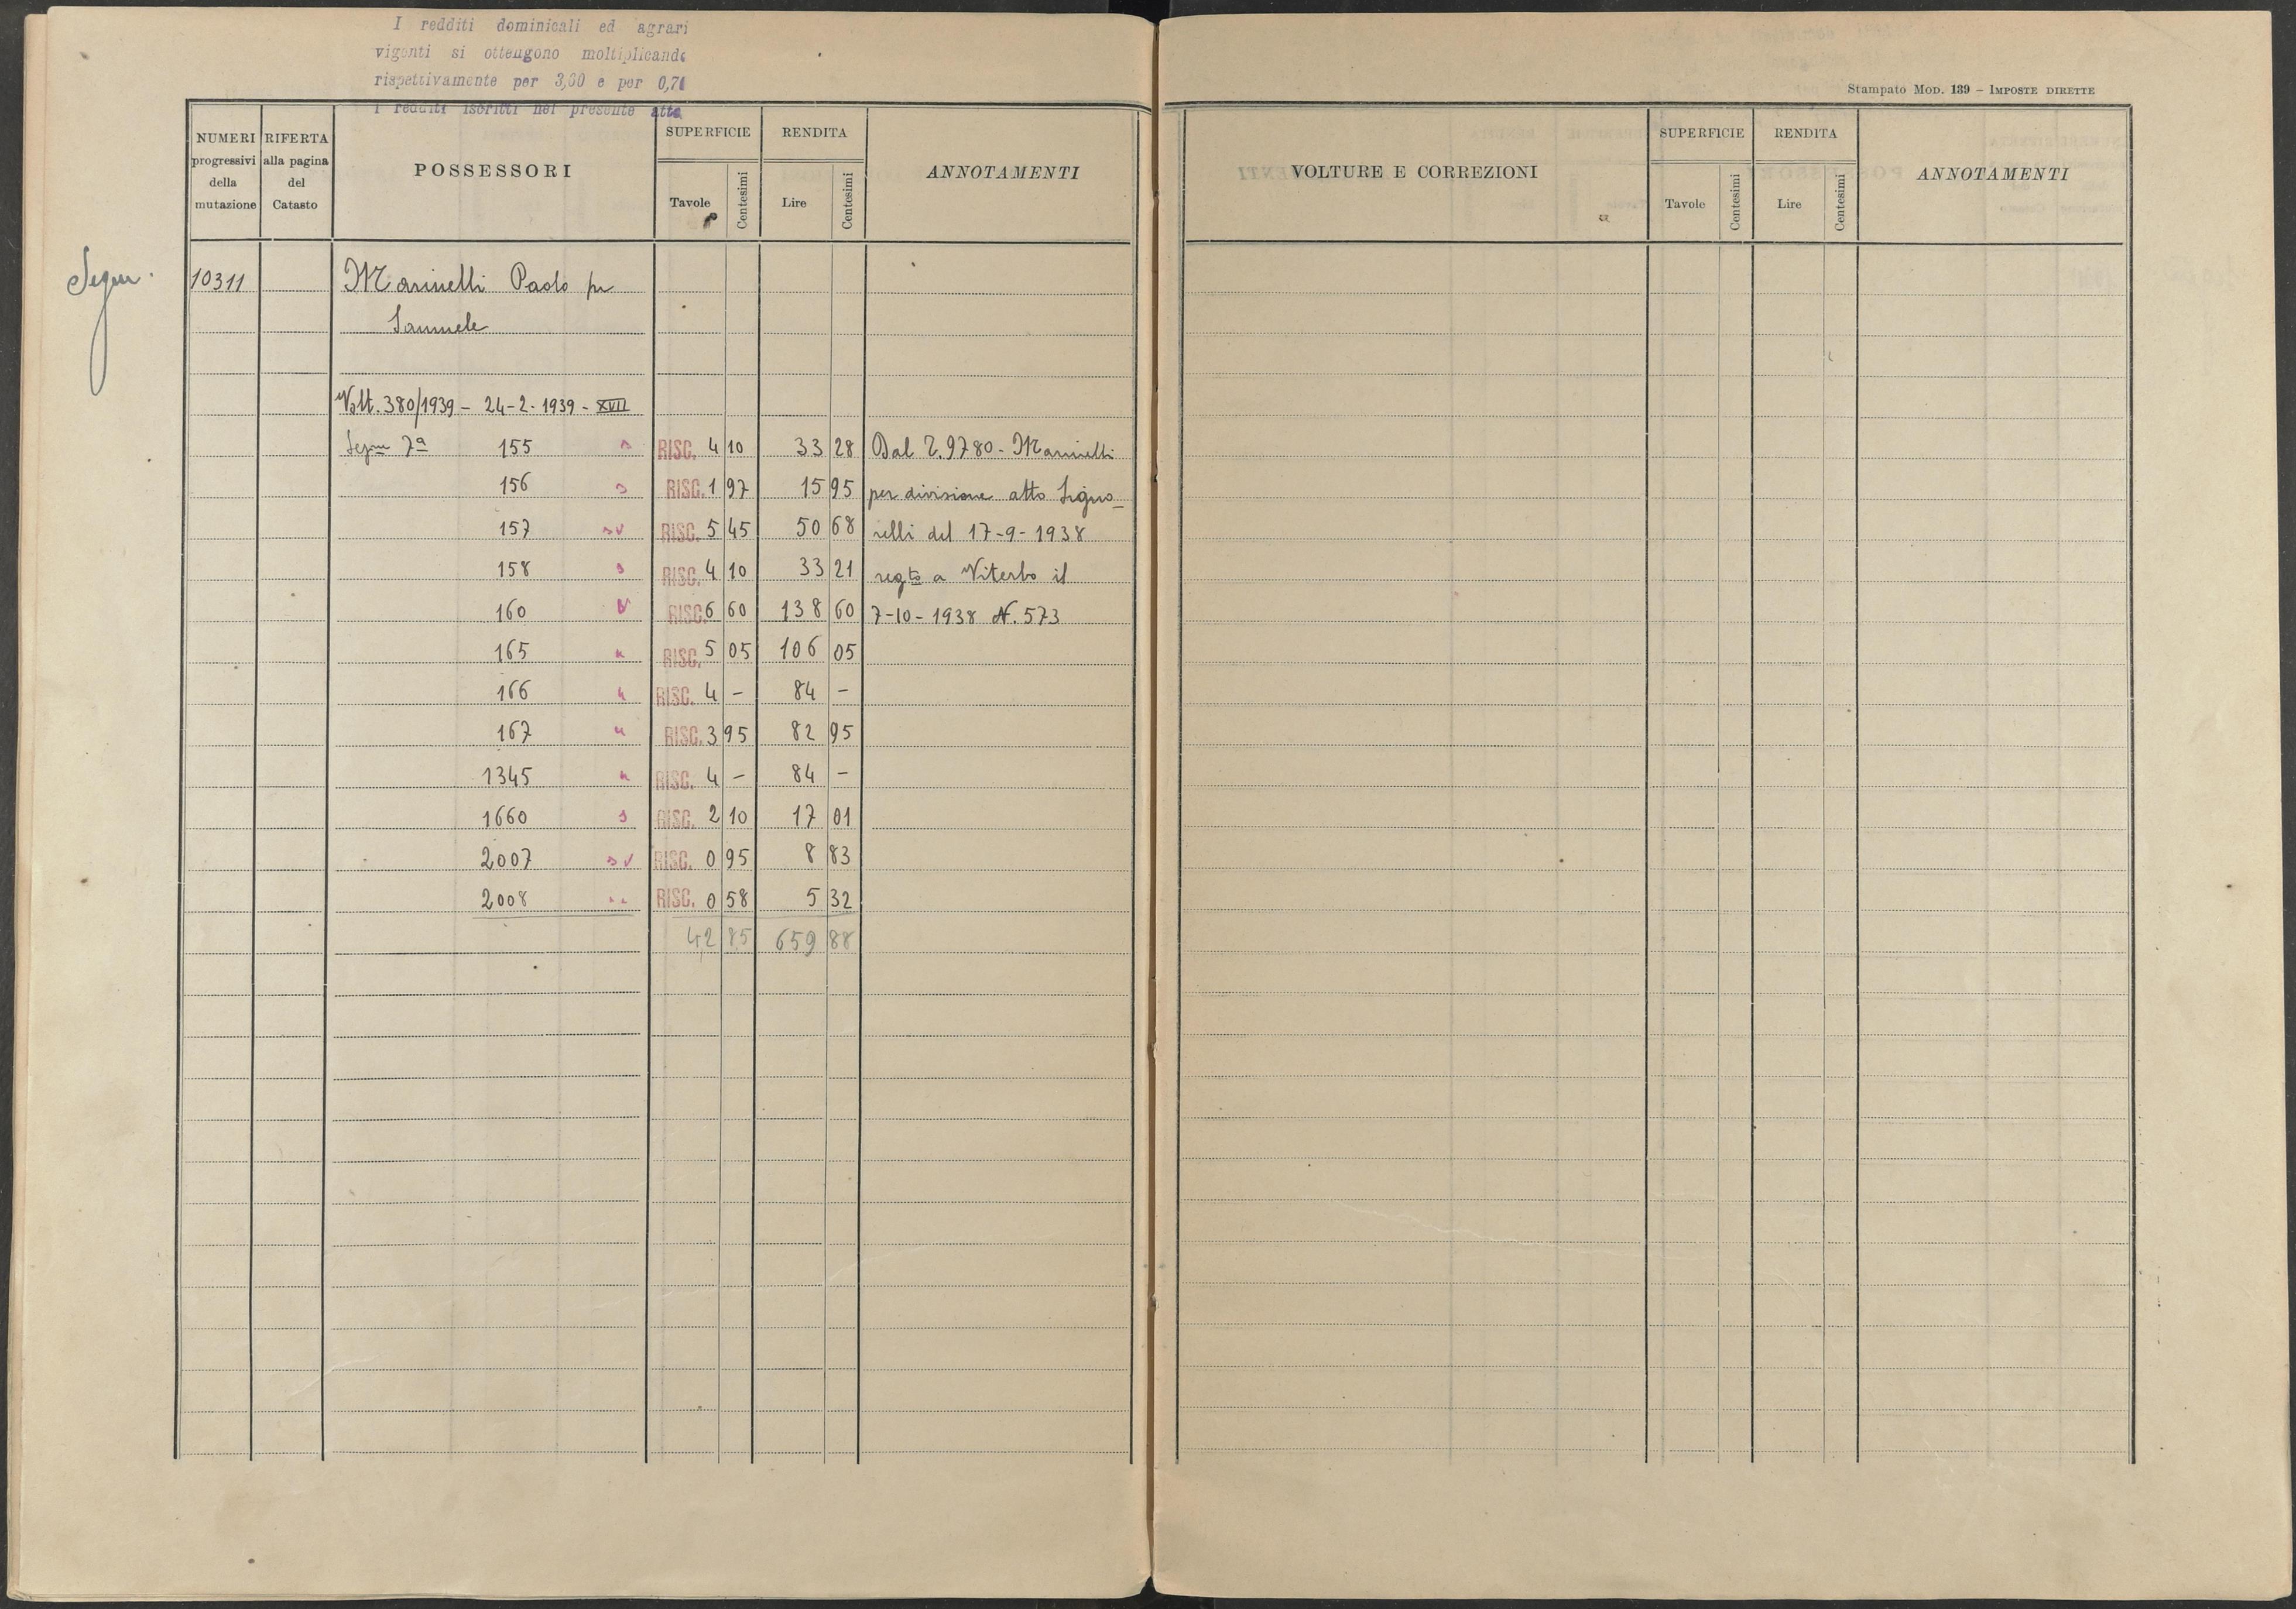 I redditi dominicali ed agrari
vigenti si ottengono moltiplicando
rispettivamente per 3,60 e per 0,71
i redditi iscritti nel presente atto
Stampato MOD. 139 – IMPOSTE DIRETTE
NUMERI progressivi della mutazione
RIFERTA alla pagina del Catasto
POSSESSORI
SUPERFICIE
Tavole Centesimi
RENDITA
Lire Centesimi
ANNOTAMENTI
10311 Marinelli Paolo fu
Samuele
Volt. 380/1939 – 24-2-1939 - XVII
7ª 155 s RISC. 4 10 33 28 Dal 9780 - Marinelli
156 s RISC. 1 97 15 95 per divisione atto Signo-
157 sv RISC. 5 45 50 68 relli del 17-9-1938
158 s RISC. 4 10 33 21 regto a Viterbo il
160 V RISC 6 60 138 60 7-10-1938 N. 573
165 RISC. 5 05 106 05
166 RISC. 4 – 84 –
167 RISC. 3 95 82 95
1345 RISC. 4 – 84 –
1660 s RISC. 2 10 17 01
2007 sv RISC. 0 95 8 83
2008 RISC. 0 58 5 32
42 85 659 88
VOLTURE E CORREZIONI
SUPERFICIE
Tavole Centesimi
RENDITA
Lire Centesimi
ANNOTAMENTI